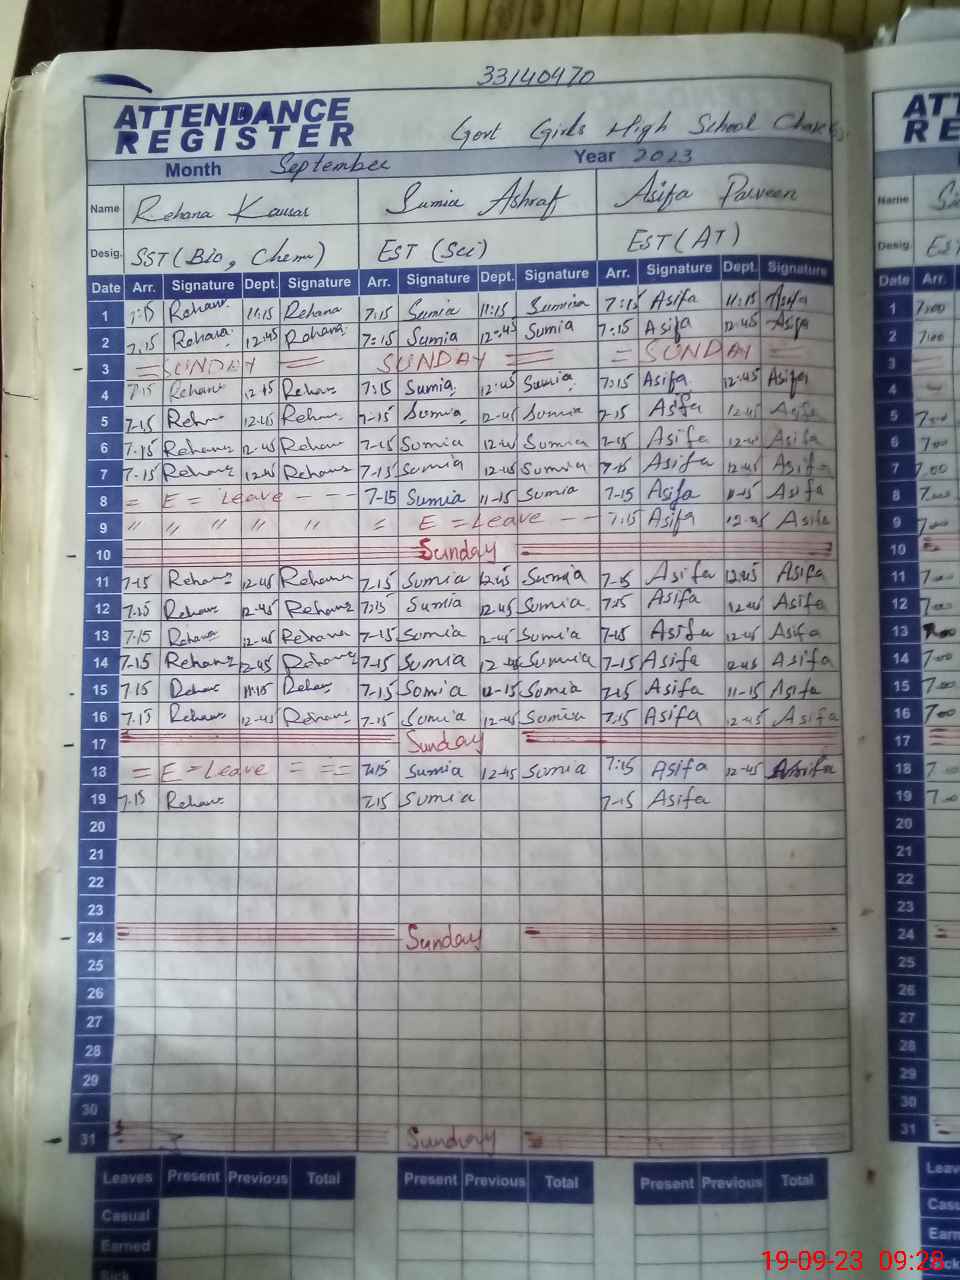 33140970
ATTENDANCE
REGISTER
Govt Girls High School
Month September Year 2023
Name Rehana Kausar Sumia Ashraf Asifa Parveen
Desig. SST (Bio, Chem) EST (Sci) EST (AT)
Date Arr. Signature Dept. Signature Arr. Signature Dept. Signature Arr. Signature Dept. Signature
1 7:15 Rehana 11:15 Rehana 7:15 Sumia 11:15 Sumia 7:15 Asifa 11:15 Asifa
2 7.15 Rehana 12:45 Rehana 7:15 Sumia 12:45 Sumia 7:15 Asifa 12:45 Asifa
3 = SUNDAY = SUNDAY = = SUNDAY =
4 7:15 Rehana 12:45 Rehana 7:15 Sumia 12:45 Sumia 7:15 Asifa 12:45 Asifa
5 7-15 Rehana 12:45 Rehana 7-15 Sumia 12-45 Sumia 7-15 Asifa 12-45 Asifa
6 7.15 Rehana 12.45 Rehana 7-15 Sumia 12-45 Sumia 7-15 Asifa 12-45 Asifa
7 7-15 Rehana 12.45 Rehana 7-15 Sumia 12-45 Sumia 7-15 Asifa 12-45 Asifa
8 = E = Leave - - - 7-15 Sumia 11-15 Sumia 7-15 Asifa 11-15 Asifa
9 " " " " " = E = Leave - - 7:15 Asifa 12-45 Asifa
10 Sunday
11 7-15 Rehana 12-45 Rehana 7.15 Sumia 12:45 Sumia 7-15 Asifa 12:45 Asifa
12 7.15 Rehana 12-45 Rehana 7:15 Sumia 12.45 Sumia 7:15 Asifa 12-45 Asifa
13 7-15 Rehana 12-45 Rehana 7-15 Sumia 12-45 Sumia 7-15 Asifa 12-45 Asifa
14 7-15 Rehana 12-45 Rehana 7-15 Sumia 12-45 Sumia 7-15 Asifa 12.45 Asifa
15 7.15 Rehana 11-15 Rehana 7-15 Sumia 11-15 Sumia 7:15 Asifa 11-15 Asifa
16 7.15 Rehana 12-45 Rehana 7-15 Sumia 12-45 Sumia 7:15 Asifa 12-45 Asifa
17 Sunday
18 = E = Leave = == 7:15 Sumia 12-45 Sumia 7:15 Asifa 12-45 Asifa
19 7.15 Rehana 7.15 Sumia 7-15 Asifa
20
21
22
23
24 Sunday
25
26
27
28
29
30
31 Sunday
Leaves Present Previous Total Present Previous Total Present Previous Total
Casual
Earned
Sick
ATT
RE
Name
Desig. EST
Date Arr.
1 7:00
2 7:00
3
4
5 7:00
6 7:00
7 7.00
8 7:00
9 7:00
10
11 7:00
12 7:00
13 7:00
14 7:00
15 7:00
16 7:00
17
18 7:00
19 7:00
20
21
22
23
24
25
26
27
28
29
30
31
19-09-23 09:28